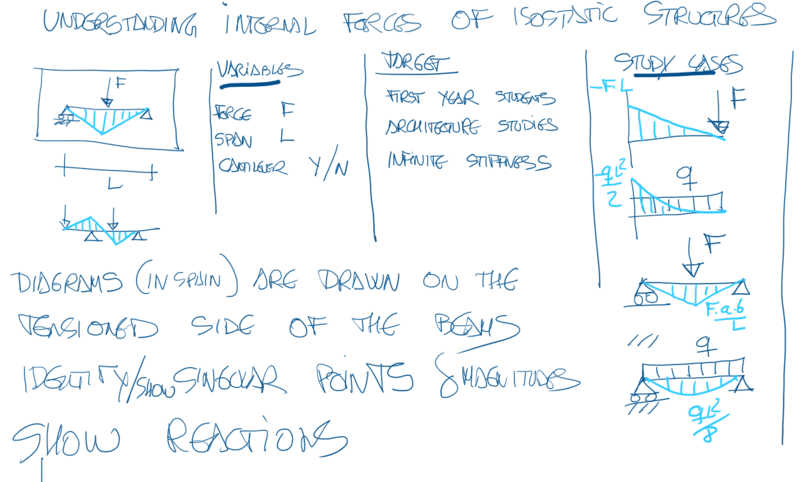 UNDERSTANDING INTERNAL FORCES OF ISOSTATIC STRUCTURES
F
L
VARIABLES
FORCE F
SPAN L
CANTILEVER Y/N
TARGET
FIRST YEAR STUDENTS
ARCHITECTURE STUDIES
INFINITE STIFFNESS
STUDY CASES
-FL
F
qL²/2
q
F
F.a.b/L
q
qL²/8
DIAGRAMS (IN SPAIN) ARE DRAWN ON THE
TENSIONED SIDE OF THE BEAMS
IDENTITY/SHOW SINGULAR POINTS & MAGNITUDES
SHOW REACTIONS